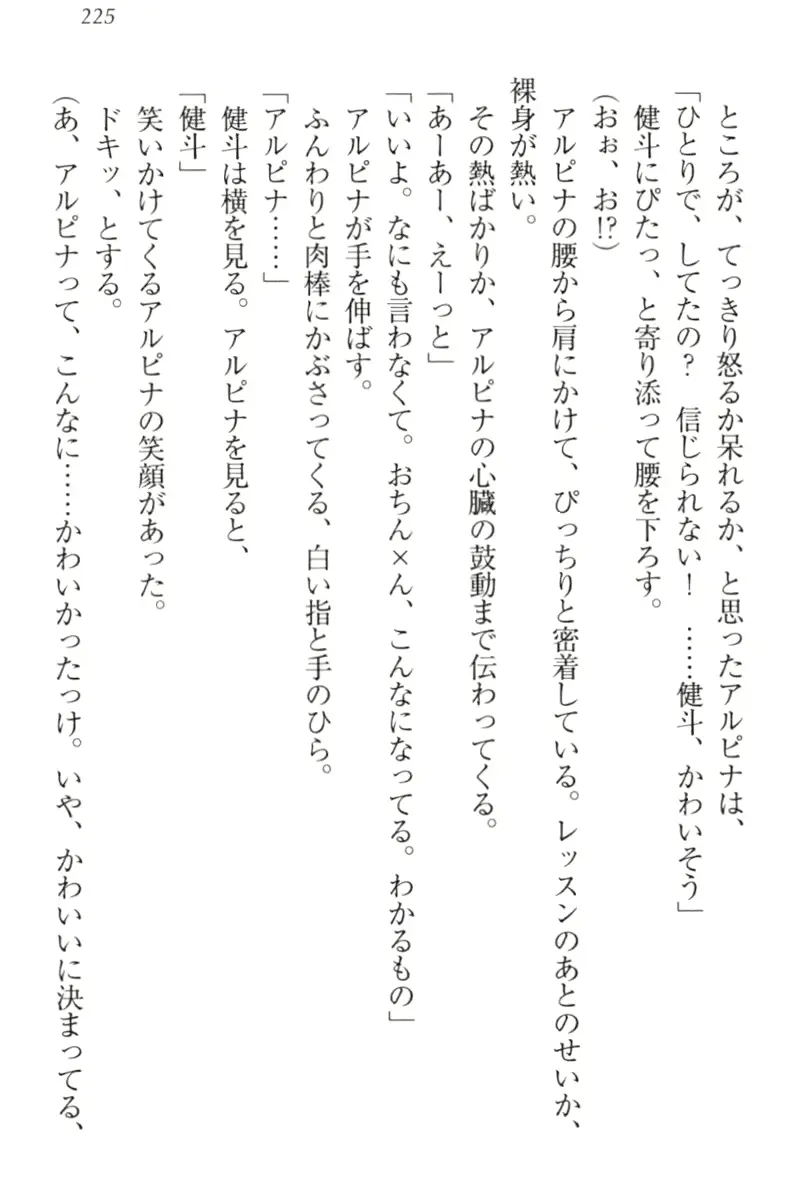 225
ところが、てっきり怒るか呆れるか、と思ったアルピナは、
「ひとりで、してたの？　信じられない！　……健斗、かわいそう」
健斗にぴたっ、と寄り添って腰を下ろす。
（おぉ、お!?）
アルピナの腰から肩にかけて、ぴっちりと密着している。レッスンのあとのせいか、
裸身が熱い。
その熱ばかりか、アルピナの心臓の鼓動まで伝わってくる。
「あーあー、えーっと」
「いいよ。なにも言わなくて。おちん×ん、こんなになってる。わかるもの」
アルピナが手を伸ばす。
ふんわりと肉棒にかぶさってくる、白い指と手のひら。
「アルピナ……」
健斗は横を見る。アルピナを見ると、
「健斗」
笑いかけてくるアルピナの笑顔があった。
ドキッ、とする。
（あ、アルピナって、こんなに……かわいかったっけ。いや、かわいいに決まってる、